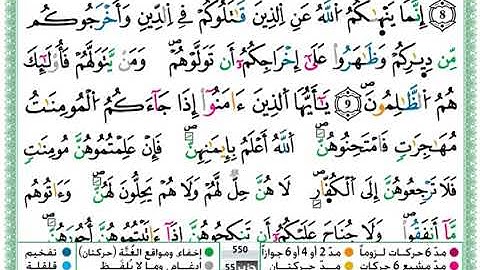 ۝8 إِنَّمَا يَنْهَىٰكُمُ اللَّهُ عَنِ الَّذِينَ قَٰتَلُوكُمْ فِي الدِّينِ وَأَخْرَجُوكُم
مِّن دِيَٰرِكُمْ وَظَٰهَرُوا عَلَىٰٓ إِخْرَاجِكُمُۥٓ أَن تَوَلَّوْهُمْ ۖ وَمَن يَتَوَلَّهُمْ فَأُوْلَٰٓئِكَ
هُمُ الظَّٰلِمُونَ ۖ ۝9 يَٰٓأَيُّهَا الَّذِينَ ءَامَنُوٓا إِذَا جَآءَكُمُ الْمُومِنَٰتُ
مُهَٰجِرَٰتٍ فَامْتَحِنُوهُنَّ ۖ اللَّهُ أَعْلَمُ بِإِيمَٰنِهِنَّ ۖ فَإِنْ عَلِمْتُمُوهُنَّ مُومِنَٰتٍ
فَلَا تَرْجِعُوهُنَّ إِلَى الْكُفَّارِ ۖ لَا هُنَّ حِلٌّ لَّهُمْ وَلَا هُمْ يَحِلُّونَ لَهُنَّ ۖ وَءَاتُوهُم
مَّآ أَنفَقُوا ۖ وَلَا جُنَاحَ عَلَيْكُمُۥٓ أَن تَنكِحُوهُنَّ إِذَآ ءَاتَيْتُمُوهُنَّ أُجُورَهُنَّ ۖ
مدّ 6 حركات لزوماً مدّ 2 أو 4 أو 6 جوازاً 550 إخفاء، ومواقع الغُنَّة (حركتان) تفخيم
مدّ مشبع 6 حركات مدّ حركتان إدغام، وما لا يُلفَظ قلقلة